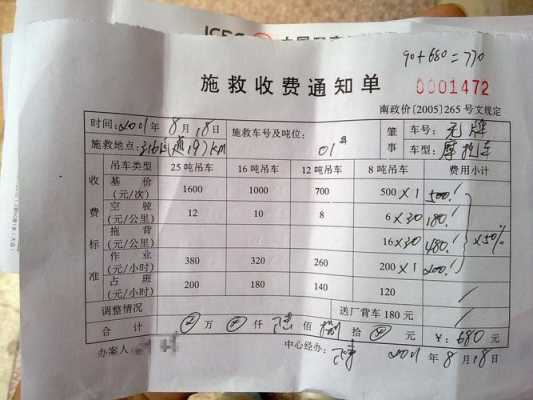 ICBC
90+680=770
施救收费通知单
0001472
南政价[2005]265号文规定
时间: 年8月18日
施救车号及吨位: 01号
肇事
车号: 无牌
施救地点: km
车型: 摩托车
收费标准
吊车类型 25吨吊车 16吨吊车 12吨吊车 8吨吊车 费用小计
基价(元/次) 1600 1000 700 500×1 500.!
空驶(元/公里) 12 10 8 6×30 180.!
拖背(元/公里) 16×30 480.! ×50%
作业(元/小时) 380 320 260 200×1 200.!
占班(元/小时) 200 180 140 120 /
调整情况 送厂背车180元 /
合计 万 仟 佰 捌拾 元 ¥:680元
办案人: 中心经办: 年8月18日